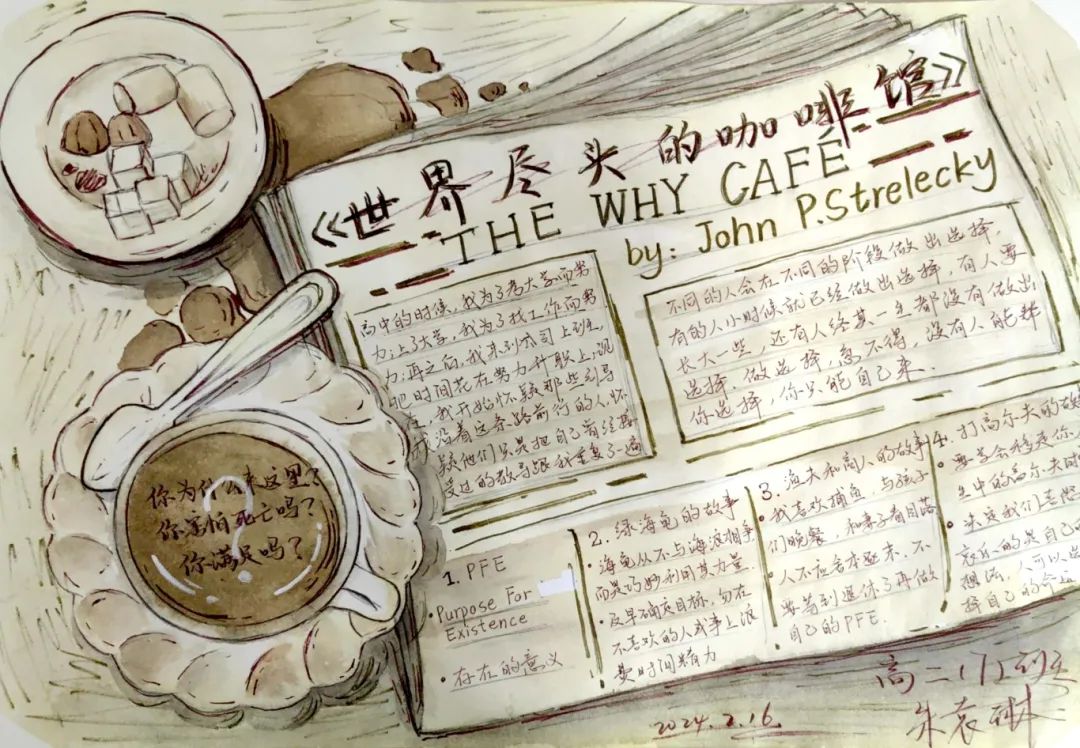 《世界尽头的咖啡馆》
THE WHY CAFÉ
by: John P.Strelecky
高中的时候,我为了考大学而努
力;上了大学,我为了找工作而努
力;再之后,我来到公司上班,
把时间花在努力升职上,现
在,我开始怀疑那些引导
我沿着这条路前行的人,怀
疑他们只是把自己曾经接
受过的教导跟我重复了一遍
不同的人会在不同的阶段做出选择,
有的人小时候就已经做出选择,有人要
长大一些,还有人终其一生都没有做出
选择,做选择,急不得,没有人能替
你选择,你只能自己来.
你为什么来这里?
你害怕死亡吗?
你满足吗?
1. PFE
·Purpose For
Existence
·存在的意义
2. 绿海龟的故事
海龟从不与海浪相争
而是巧妙利用其力量.
·及早确定目标,勿在
不喜欢的人或事上浪
费时间精力
3. 渔夫和商人的故事
·我喜欢捕鱼,与孩子
们晚餐,和妻子看日落
·人不应舍本逐末,不
要等到退休了再做
自己的PFE.
4. 打高尔夫的故
·要学会移
生中的高尔夫球
·决定我们
的是自己
想法,人可以
择自己的命运
2024.2.16.
高二(12)班
朱